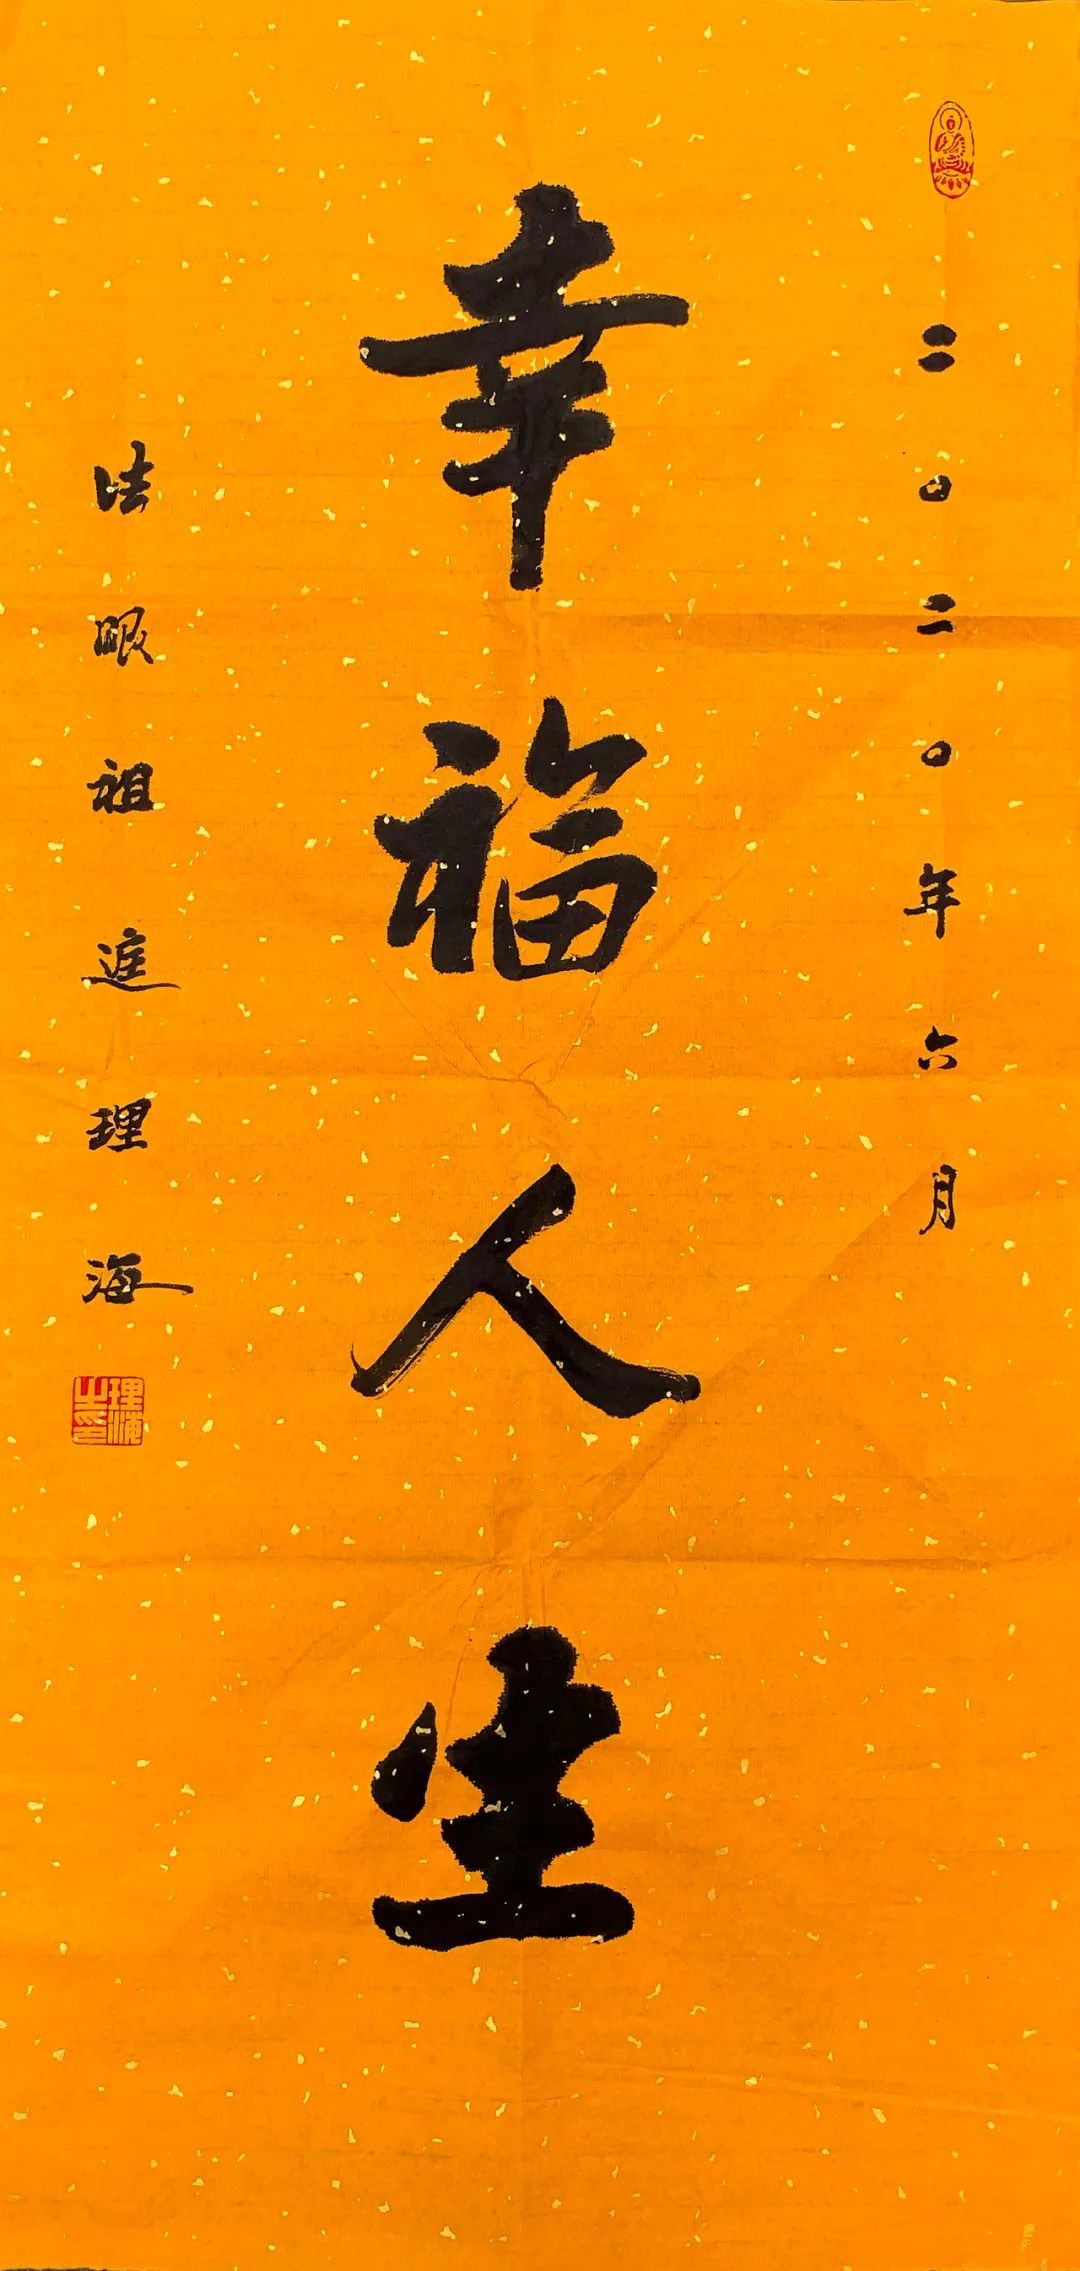 二〇二〇年六月
幸福人生
法眼祖庭理海
理海之印